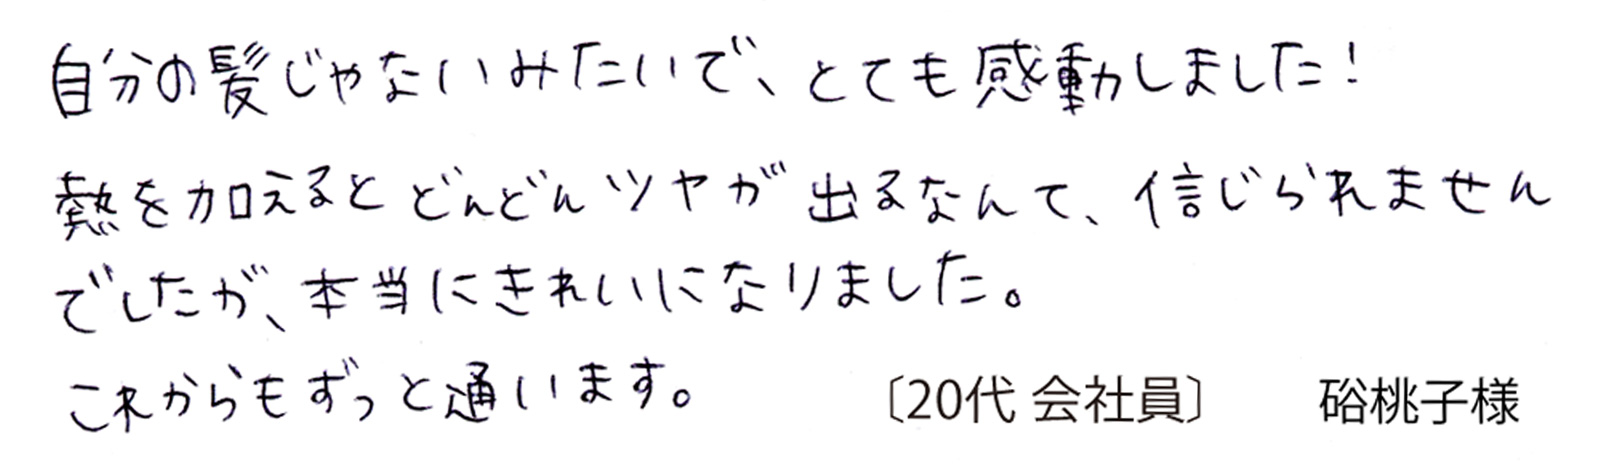 自分の髪じゃないみたいで、とても感動しました！
熱を加えるとどんどんツヤが出るなんて、信じられません
でしたが、本当にきれいになりました。
これからもずっと通います。 〔20代 会社員〕 硲桃子様